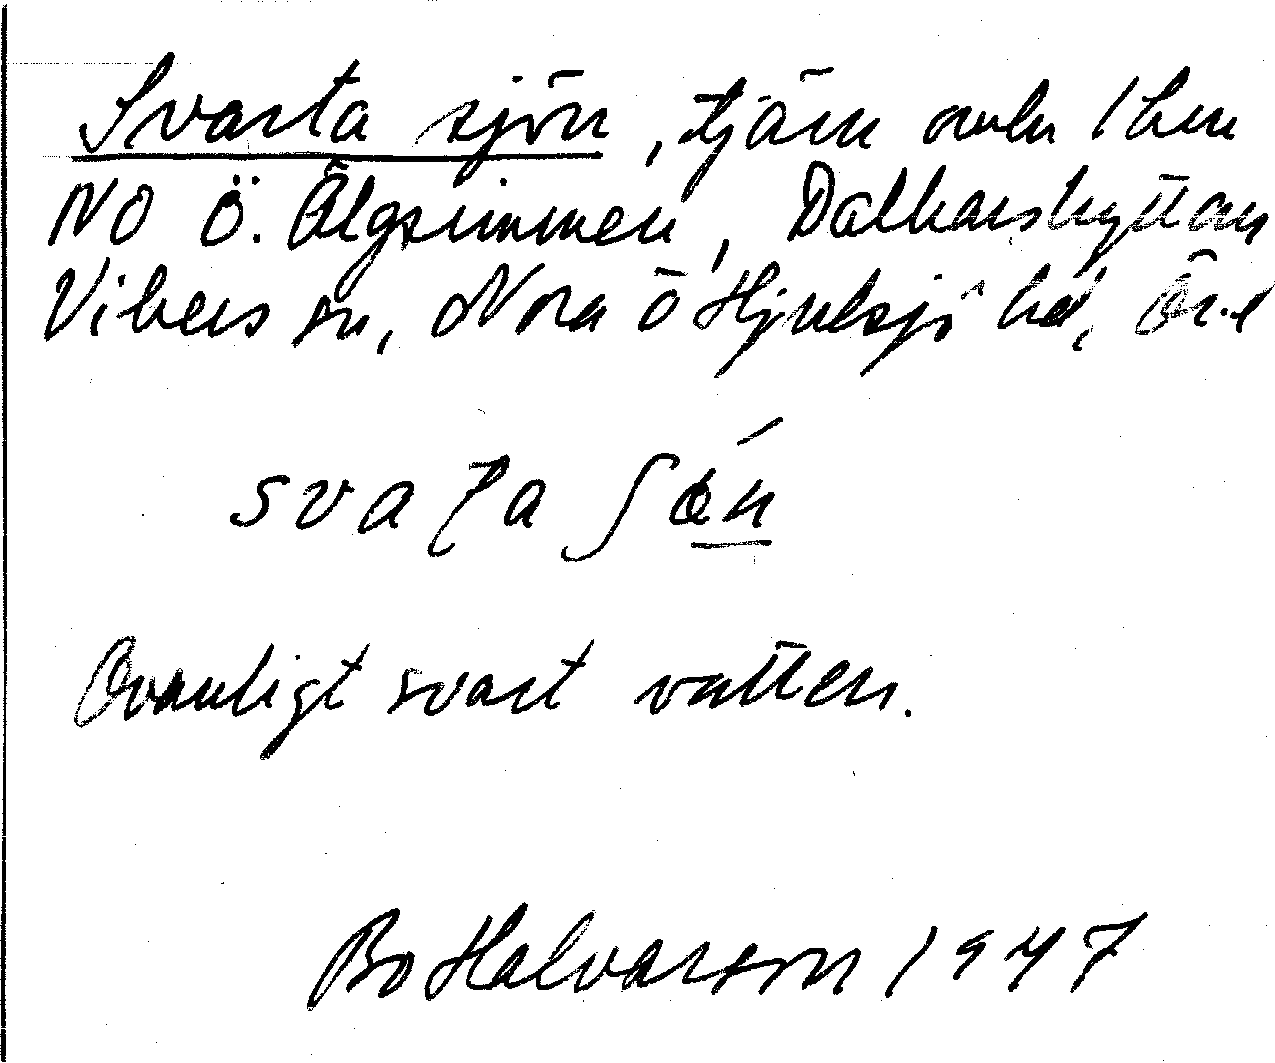 Svarta sjön, tjärn omkr 1 km
NO Ö. Älgsimmen, Dalkarshyttan
Vikers sn, Nora o Hjulsjö hd, Ör.l
svaʈa ʃǿn
Ovanligt svart vatten.
Bo Halvarson 1947